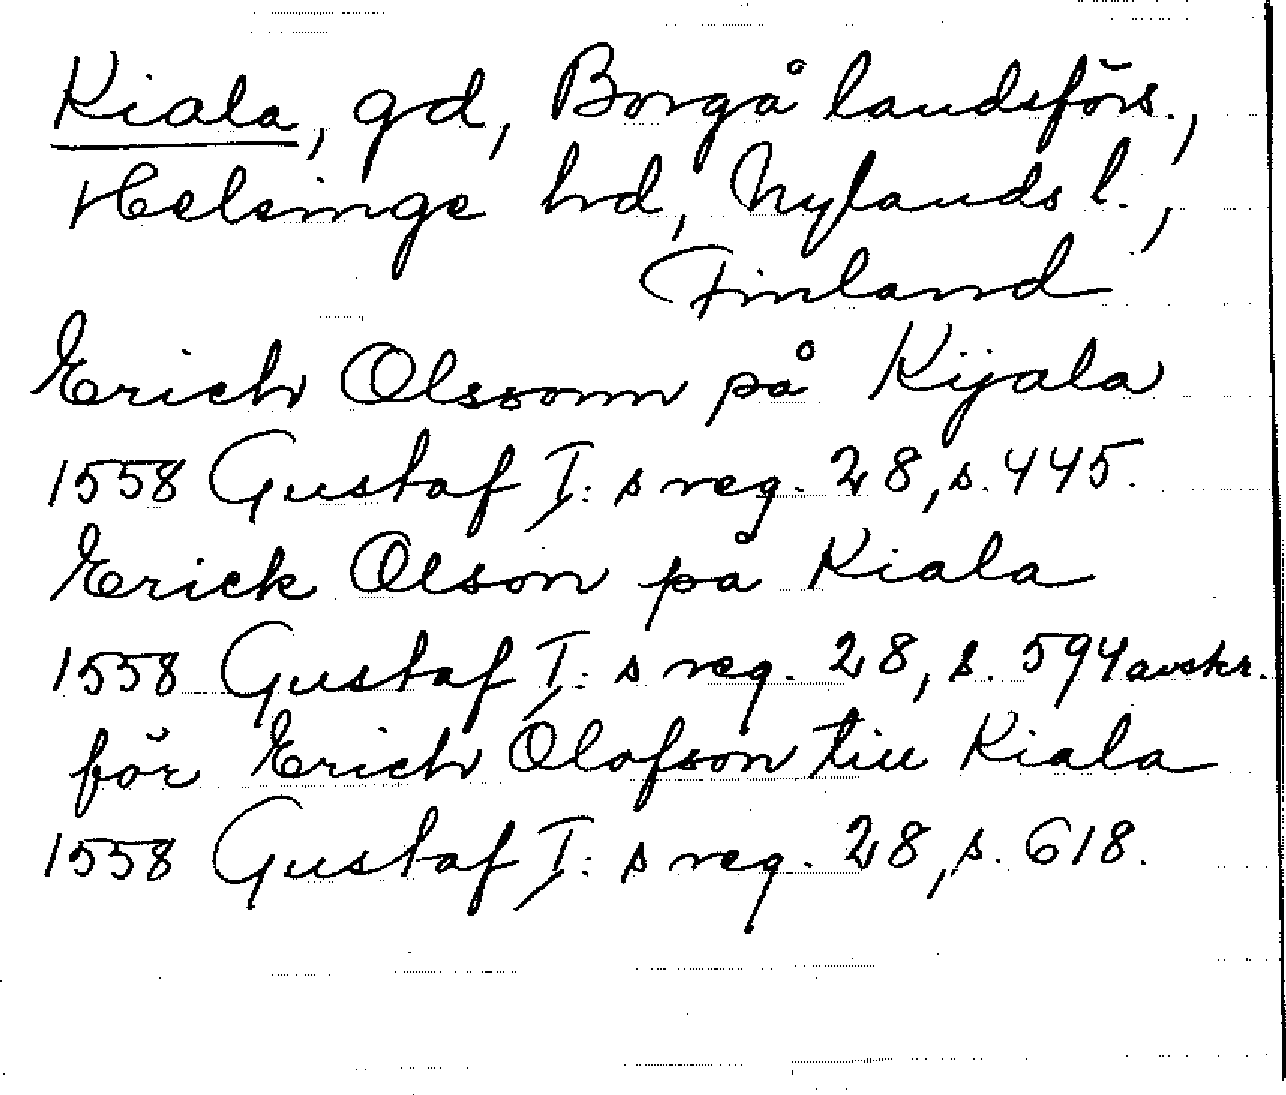 Kiala, gd, Borgå landsförs.,
Helsinge hd, Nylands l.,
Finland
Erich Olssonn på Kijala
1558 Gustaf I:s reg. 28, s. 445.
Erick Olson på Kiala
1558 Gustaf I:s reg. 28, s. 594 avskr.
för Erich Olofson till Kiala
1558 Gustaf I:s reg. 28, s. 618.